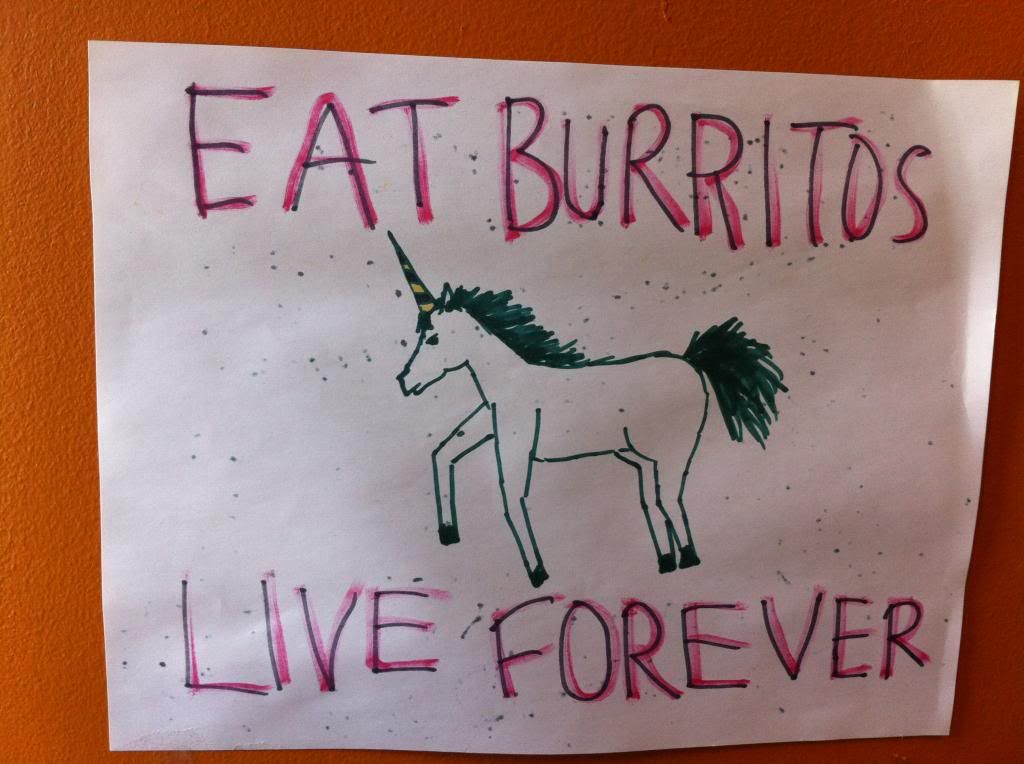 EAT BURRITOS
LIVE FOREVER